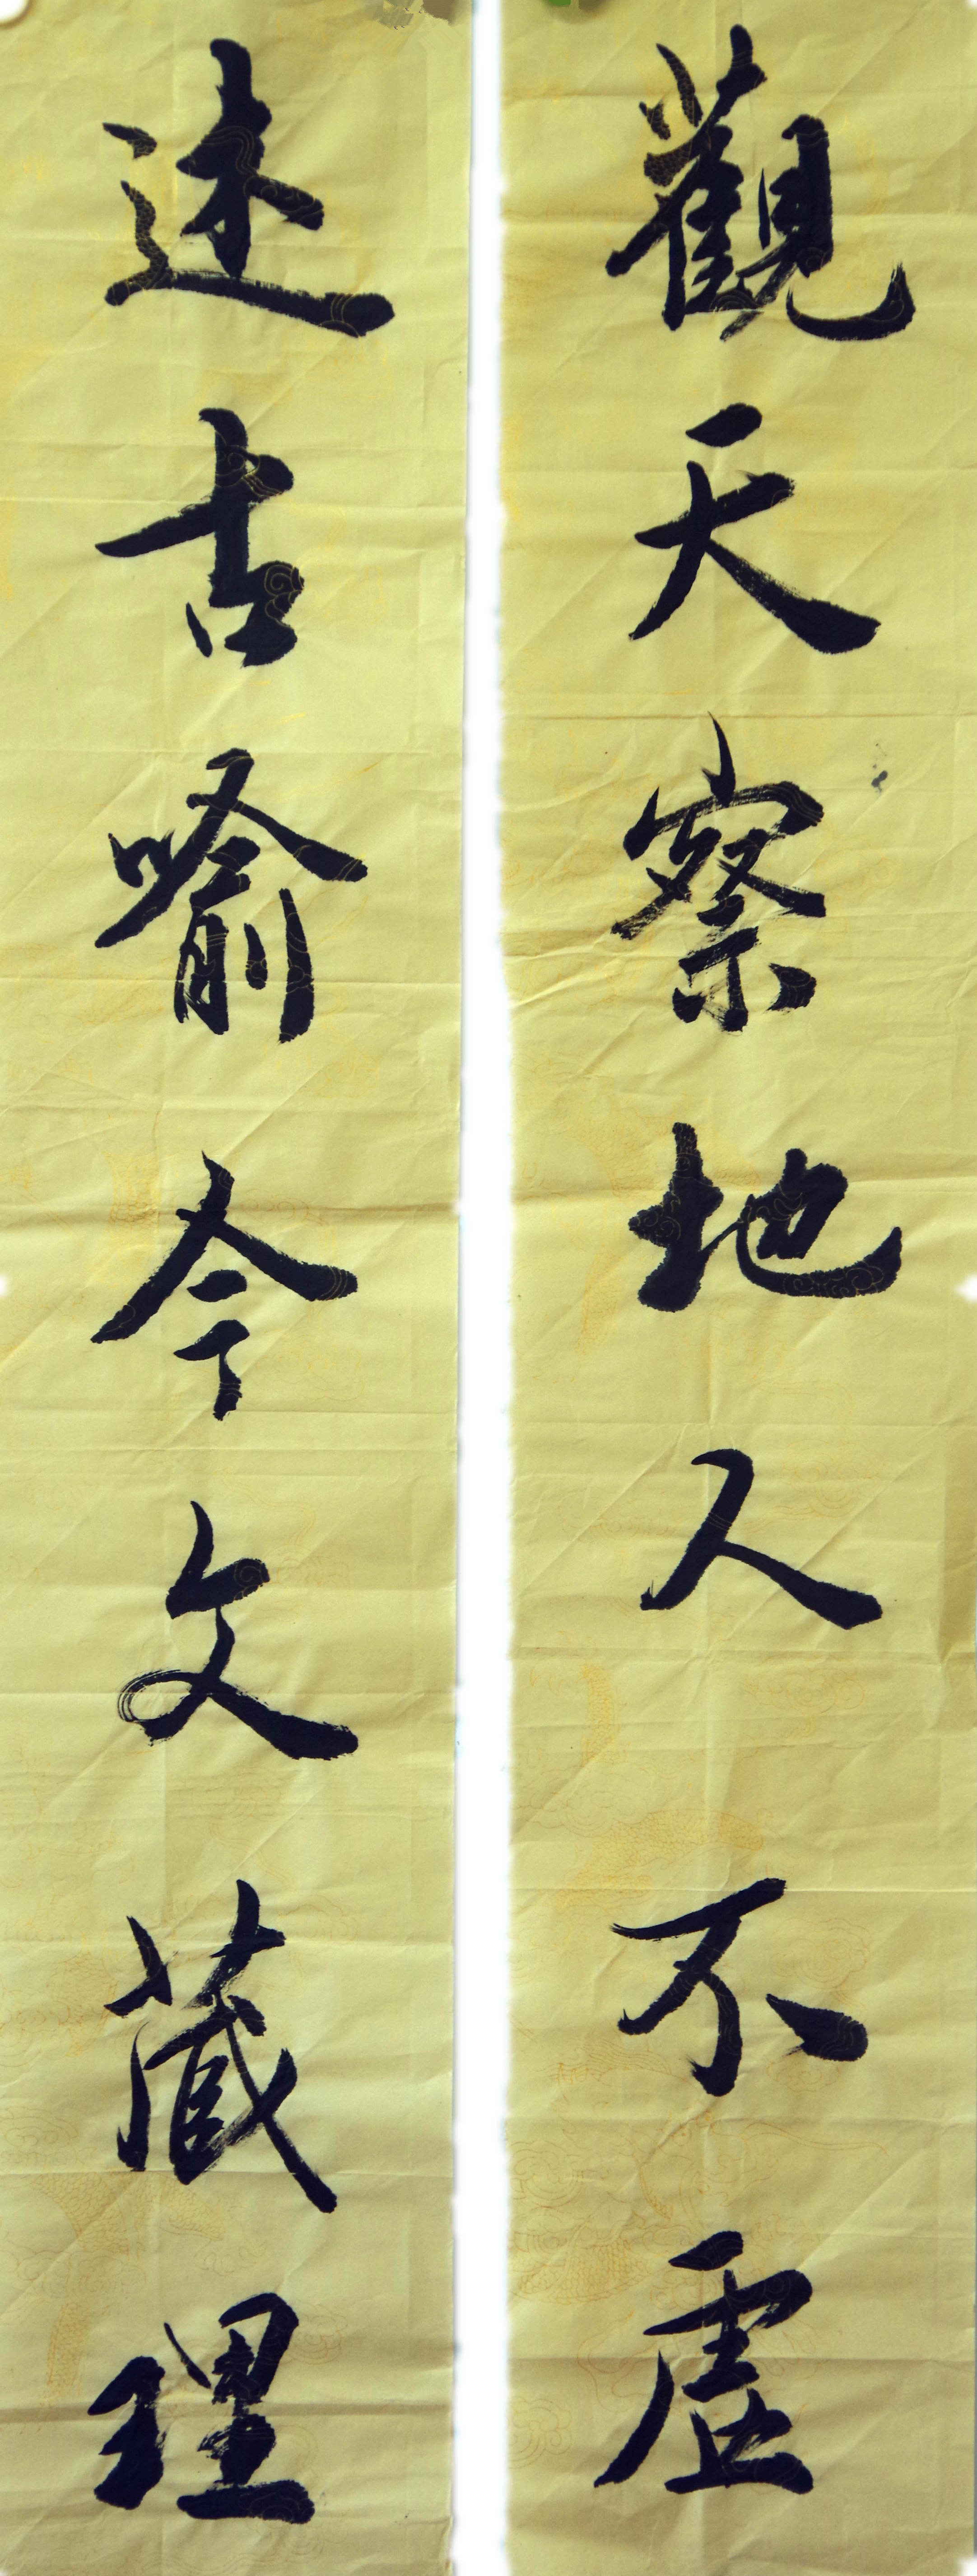 觀天察地人不虛
述古喻今文藏理